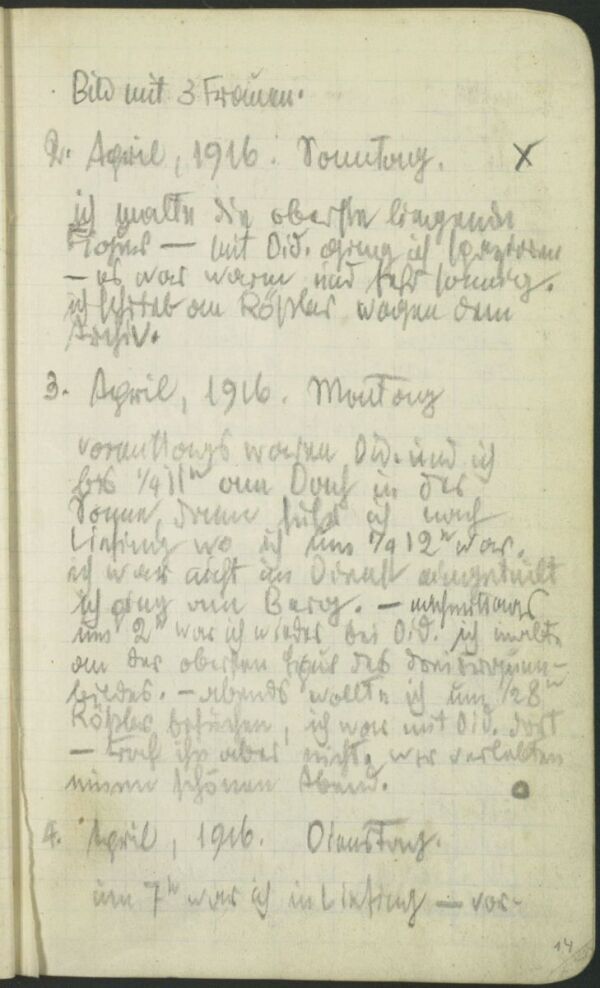 Bild mit 3 Frauen.
2. April, 1916. Sonntag. X
ich malte die oberste liegende
Figur — mit Did. ging ich spazieren
— es war warm und sehr sonnig.
ich schrieb an Rößler wegen dem
Archiv.
3. April, 1916. Montag
vormittags waren Did. und ich
bis 1/4 11h am Dach in der
Sonne, dann fuhr ich nach
Liesing wo ich um 1/4 12h war.
ich war nicht im Dienst eingeteilt
ich ging am Berg. — nachmittags
um 2h war ich wieder bei Did. ich malte
an der obersten Figur des dreifrauen-
bildes. — abends wollte ich um 1/2 8h
Rößler besuchen, ich war mit Did. dort
— traf ihn aber nicht. wir verlebten
einen schönen Abend. o
4. April, 1916. Dienstag.
um 7h war ich in Liesing — vor-
14